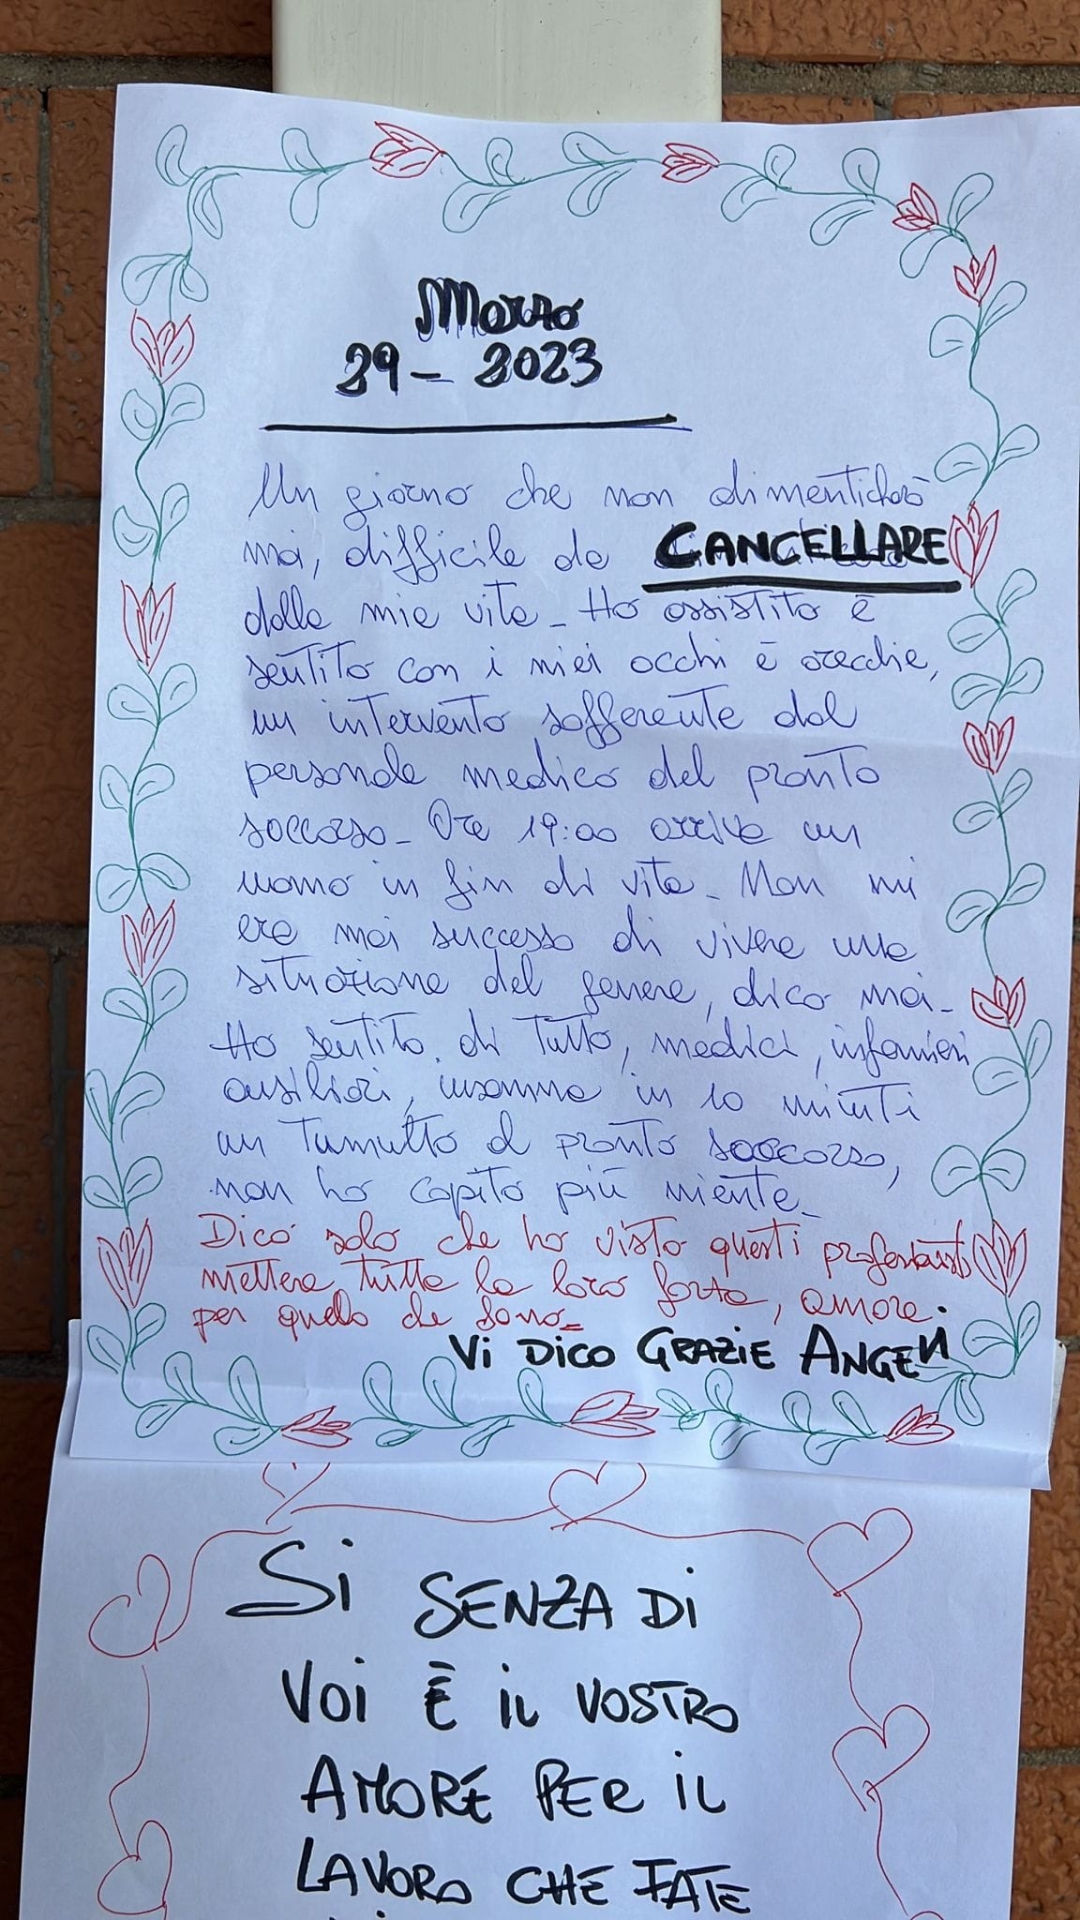 Marzo
29- 2023
Un giorno che non dimenticherò
mai, difficile da CANCELLARE
dalla mia vita_ Ho assistito ē
sentito con i miei occhi ē orecchie,
un intervento sofferente dal
personale medico del pronto
soccorso_ Ore 19:00 arriva un
uomo in fin di vita_ Non mi
era mai successo di vivere una
situazione del genere, dico mai_
Ho sentito di tutto, medici, infermieri
ausiliari, insomma in 10 minuti
un tumulto al pronto soccorso,
non ho capito più niente_
Dico solo che ho visto questi
mettere tutta la loro forza, amore
per quello che sono_
Vi DiCO GRAZiE ANGELi
Si SENZA Di
Voi Ē iL VOSTRO
AMORE PER iL
LAVORO CHE FATE